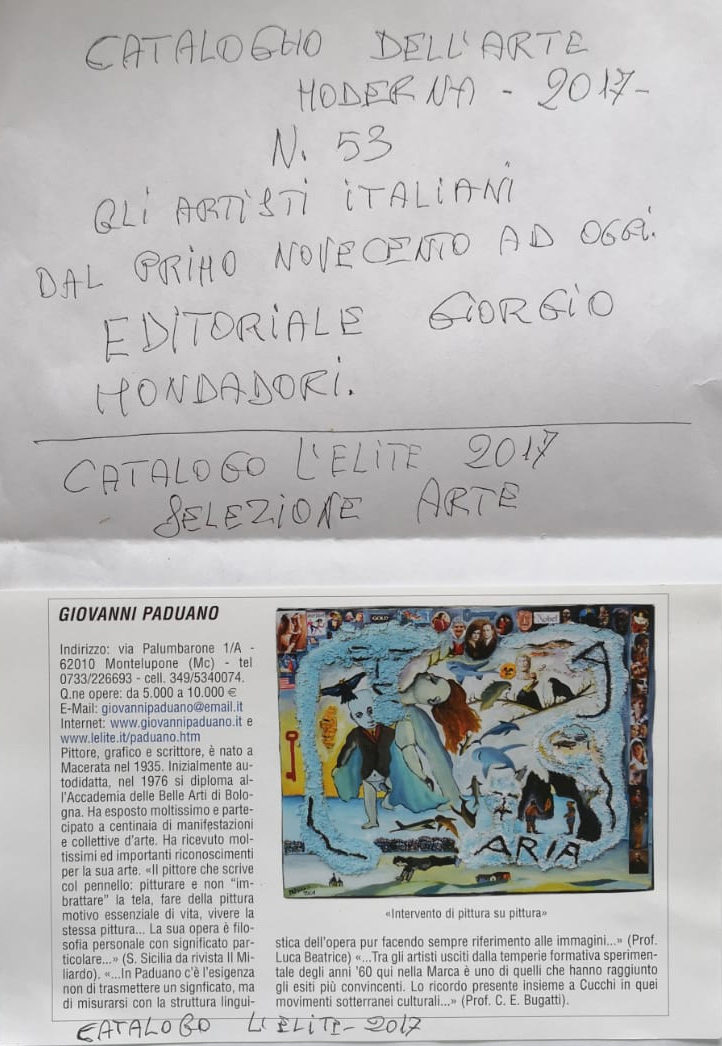 CATALOGHO DELL'ARTE
MODERNA - 2017-
N. 53
GLI ARTISTI ITALIANI
DAL PRIMO NOVECENTO AD OGGI.
EDITORIALE GIORGIO
MONDADORI.
CATALOGO L'ELITE 2017
SELEZIONE ARTE
GIOVANNI PADUANO
Indirizzo: via Palumbarone 1/A -
62010 Montelupone (Mc) - tel
0733/226693 - cell. 349/5340074.
Q.ne opere: da 5.000 a 10.000 €
E-Mail: giovannipaduano@email.it
Internet: www.giovannipaduano.it e
www.lelite.it/paduano.htm
Pittore, grafico e scrittore, è nato a
Macerata nel 1935. Inizialmente au-
todidatta, nel 1976 si diploma al-
l'Accademia delle Belle Arti di Bolo-
gna. Ha esposto moltissimo e parte-
cipato a centinaia di manifestazioni
e collettive d'arte. Ha ricevuto mol-
tissimi ed importanti riconoscimenti
per la sua arte. «Il pittore che scrive
col pennello: pitturare e non "im-
brattare" la tela, fare della pittura
motivo essenziale di vita, vivere la
stessa pittura... La sua opera è filo-
sofia personale con significato par-
ticolare...» (S. Sicilia da rivista Il Mi-
liardo). «...In Paduano c'è l'esigenza
non di trasmettere un signficato, ma
di misurarsi con la struttura lingui-
GOLD
Nobel
ARIA
«Intervento di pittura su pittura»
stica dell'opera pur facendo sempre riferimento alle immagini...» (Prof.
Luca Beatrice) «...Tra gli artisti usciti dalla temperie formativa sperimen-
tale degli anni '60 qui nella Marca è uno di quelli che hanno raggiunto
gli esiti più convincenti. Lo ricordo presente insieme a Cucchi in quei
movimenti sotterranei culturali...» (Prof. C. E. Bugatti).
CATALOGO L'ELITE-2017